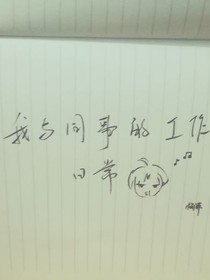 我与同事的工作
日常